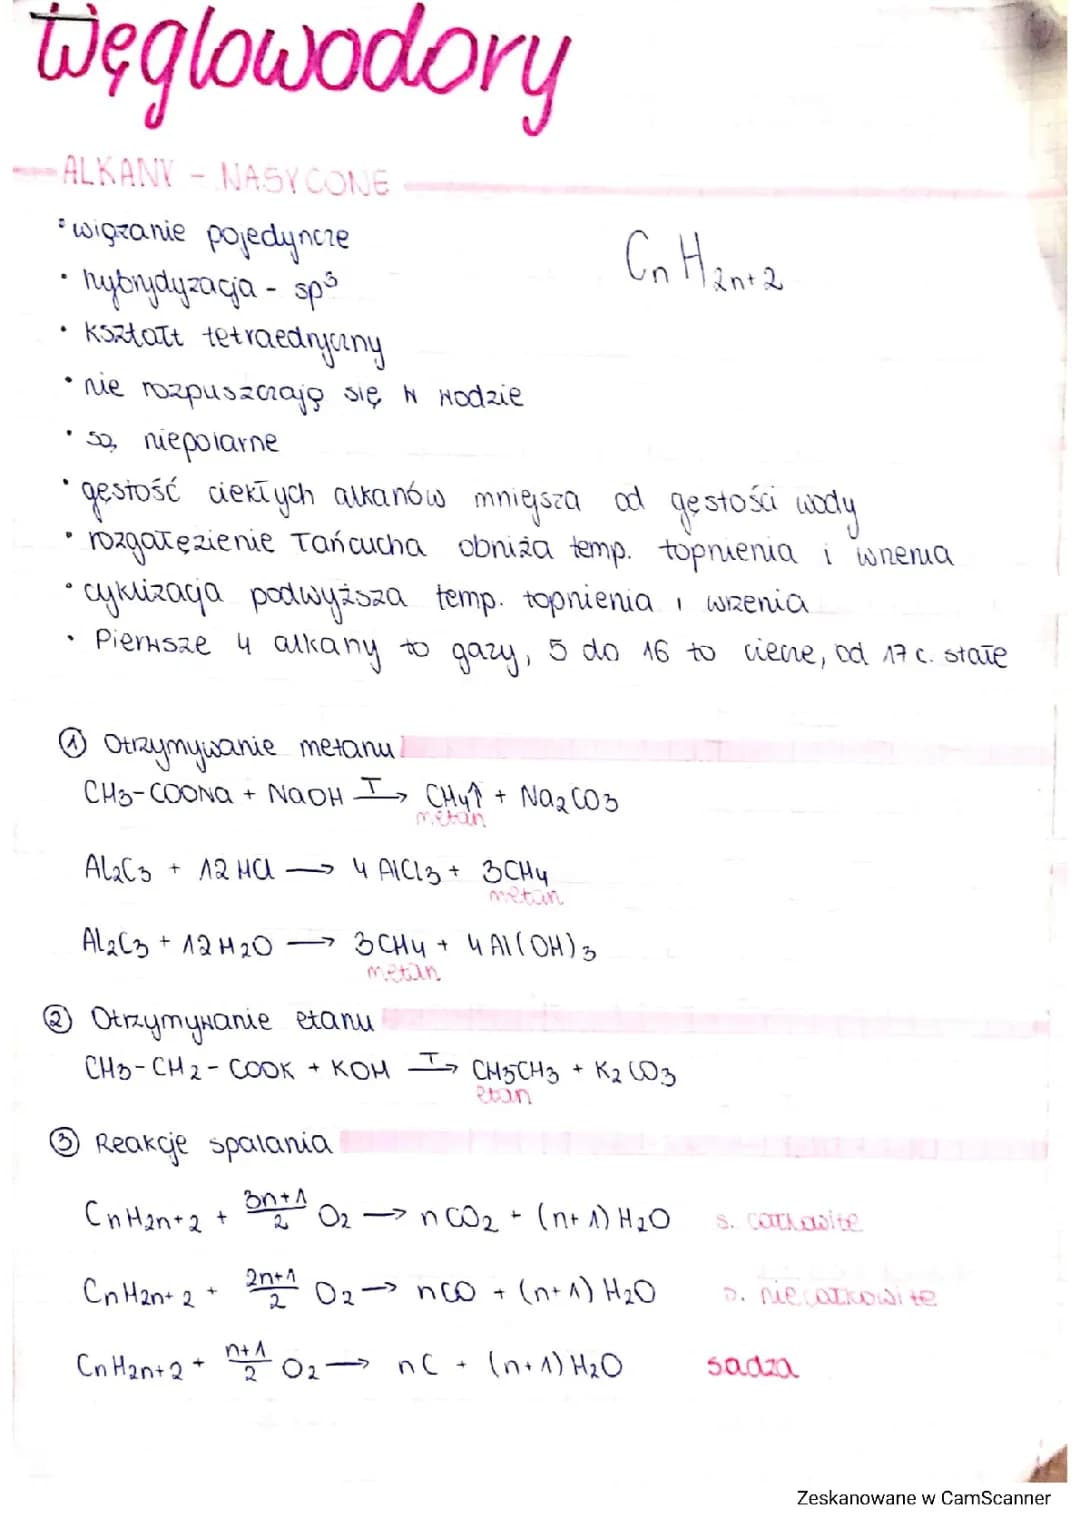 Węglowodory
ALKANY - NASYCONE
• wiązanie pojedyncze
CnH2n+2
• hybrydyzacja - sp³
• kształt tetraedryczny
• nie rozpuszczają się w wodzie
• są niepolarne
• gęstość ciekłych alkanów mniejsza od gęstości wody
• rozgałęzienie łańcucha obniża temp. topnienia i wrzenia
• cyklizacja podwyższa temp. topnienia i wrzenia
• Pierwsze 4 alkany to gazy, 5 do 16 to ciecze, od 17 c. stałe
① Otrzymywanie metanu
CH3-COONa + NaOH —T→ CH4↑ + Na2CO3
metan
Al2C3 + 12HCl → 4AlCl3 + 3CH4
metan
Al2C3 + 12H2O → 3CH4 + 4Al(OH)3
metan
② Otrzymywanie etanu
CH3-CH2-COOK + KOH —T→ CH3CH3 + K2CO3
etan
③ Reakcje spalania
CnH2n+2 + 3n+1/2 O2 → nCO2 + (n+1)H2O s. całkowite
CnH2n+2 + 2n+1/2 O2 → nCO + (n+1)H2O s. niecałkowite
CnH2n+2 + n+1/2 O2 → nC + (n+1)H2O sadza
Zeskanowane w CamScanner